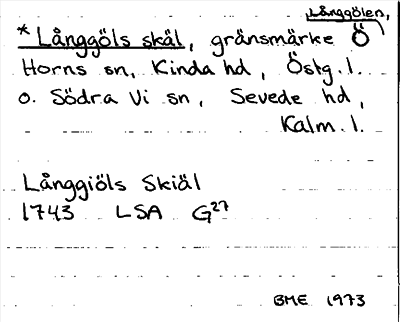 Långgölen,
*Långgöls skäl, gränsmärke Ö
Horns sn, Kinda hd, Östg. l.
o. Södra Vi sn, Sevede hd,
Kalm. l.
Långgiöls Skiäl
1743 LSA G27
BME 1973